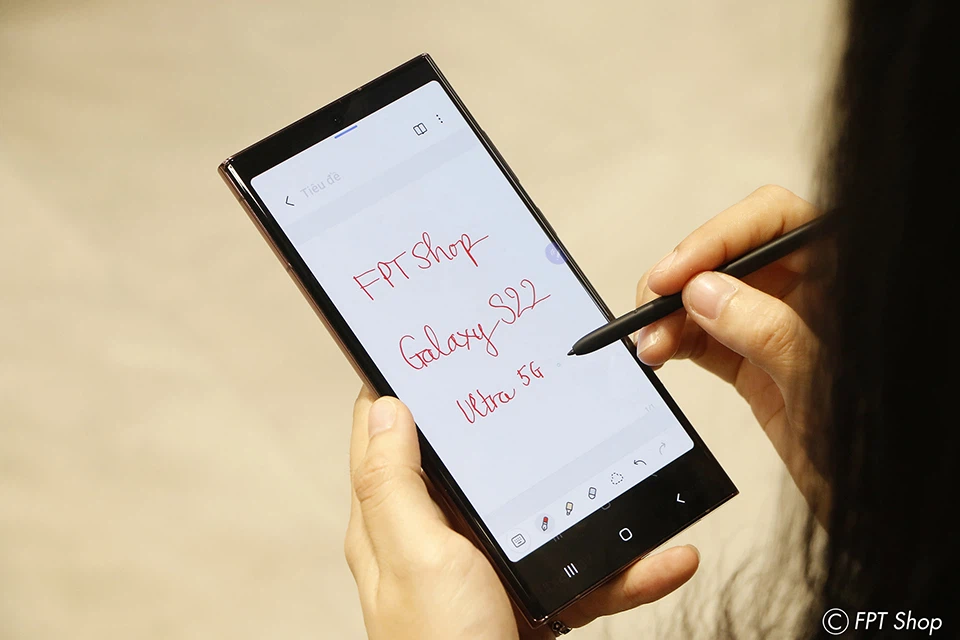 Tiêu đề
FPT Shop
Galaxy S22
Ultra 5G
© FPT Shop